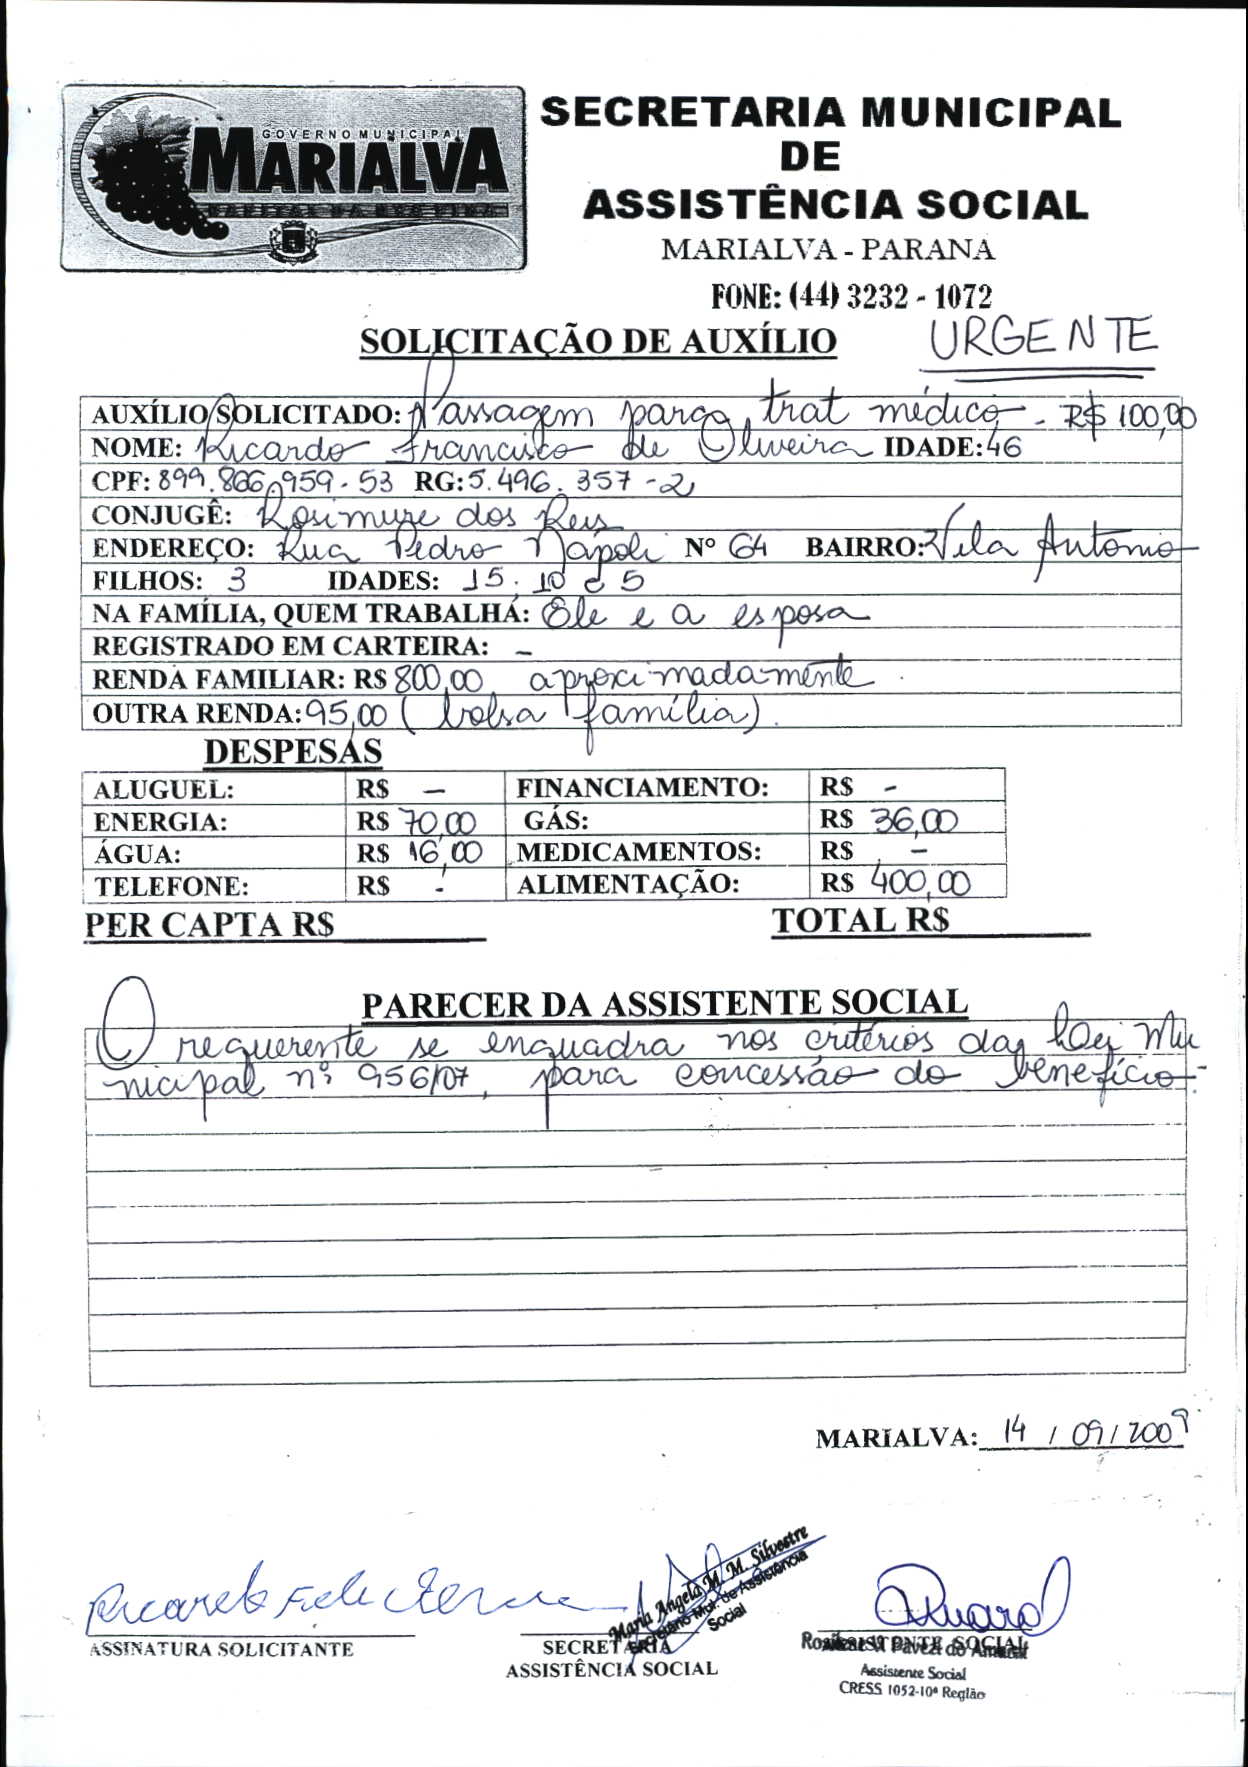 GOVERNO MUNICIPAL
MARIALVA
SECRETARIA MUNICIPAL
DE
ASSISTÊNCIA SOCIAL
MARIALVA - PARANA
FONE: (44) 3232 - 1072
SOLICITAÇÃO DE AUXÍLIO URGENTE
AUXÍLIO SOLICITADO: Passagem para trat médico - R$ 100,00
NOME: Ricardo Francisco de Oliveira IDADE: 46
CPF: 899.866.959-53 RG: 5.496.357-2
CONJUGÊ: Rosimure dos Reis
ENDEREÇO: Rua Pedro Napoli Nº 64 BAIRRO: Vila Antonio
FILHOS: 3 IDADES: 15, 10 e 5
NA FAMÍLIA, QUEM TRABALHA: Ele e a esposa
REGISTRADO EM CARTEIRA: -
RENDA FAMILIAR: R$ 800,00 aproximadamente
OUTRA RENDA: 95,00 (bolsa família).
DESPESAS
ALUGUEL: R$ - FINANCIAMENTO: R$ -
ENERGIA: R$ 70,00 GÁS: R$ 36,00
ÁGUA: R$ 16,00 MEDICAMENTOS: R$ -
TELEFONE: R$ - ALIMENTAÇÃO: R$ 400,00
PER CAPTA R$ TOTAL R$
PARECER DA ASSISTENTE SOCIAL
O requerente se enquadra nos critérios da Lei Mu
nicipal nº 956/07, para concessão do benefício.
MARIALVA: 14 / 09 / 2009
Maria Angela M. M. Silvestre
Secretário Mul. de Assistência
Social
ASSINATURA SOLICITANTE SECRETARIA ASSISTENTE SOCIAL
ASSISTÊNCIA SOCIAL
Pavezi do Amaral
Assistente Social
CRESS 1052-10ª Região